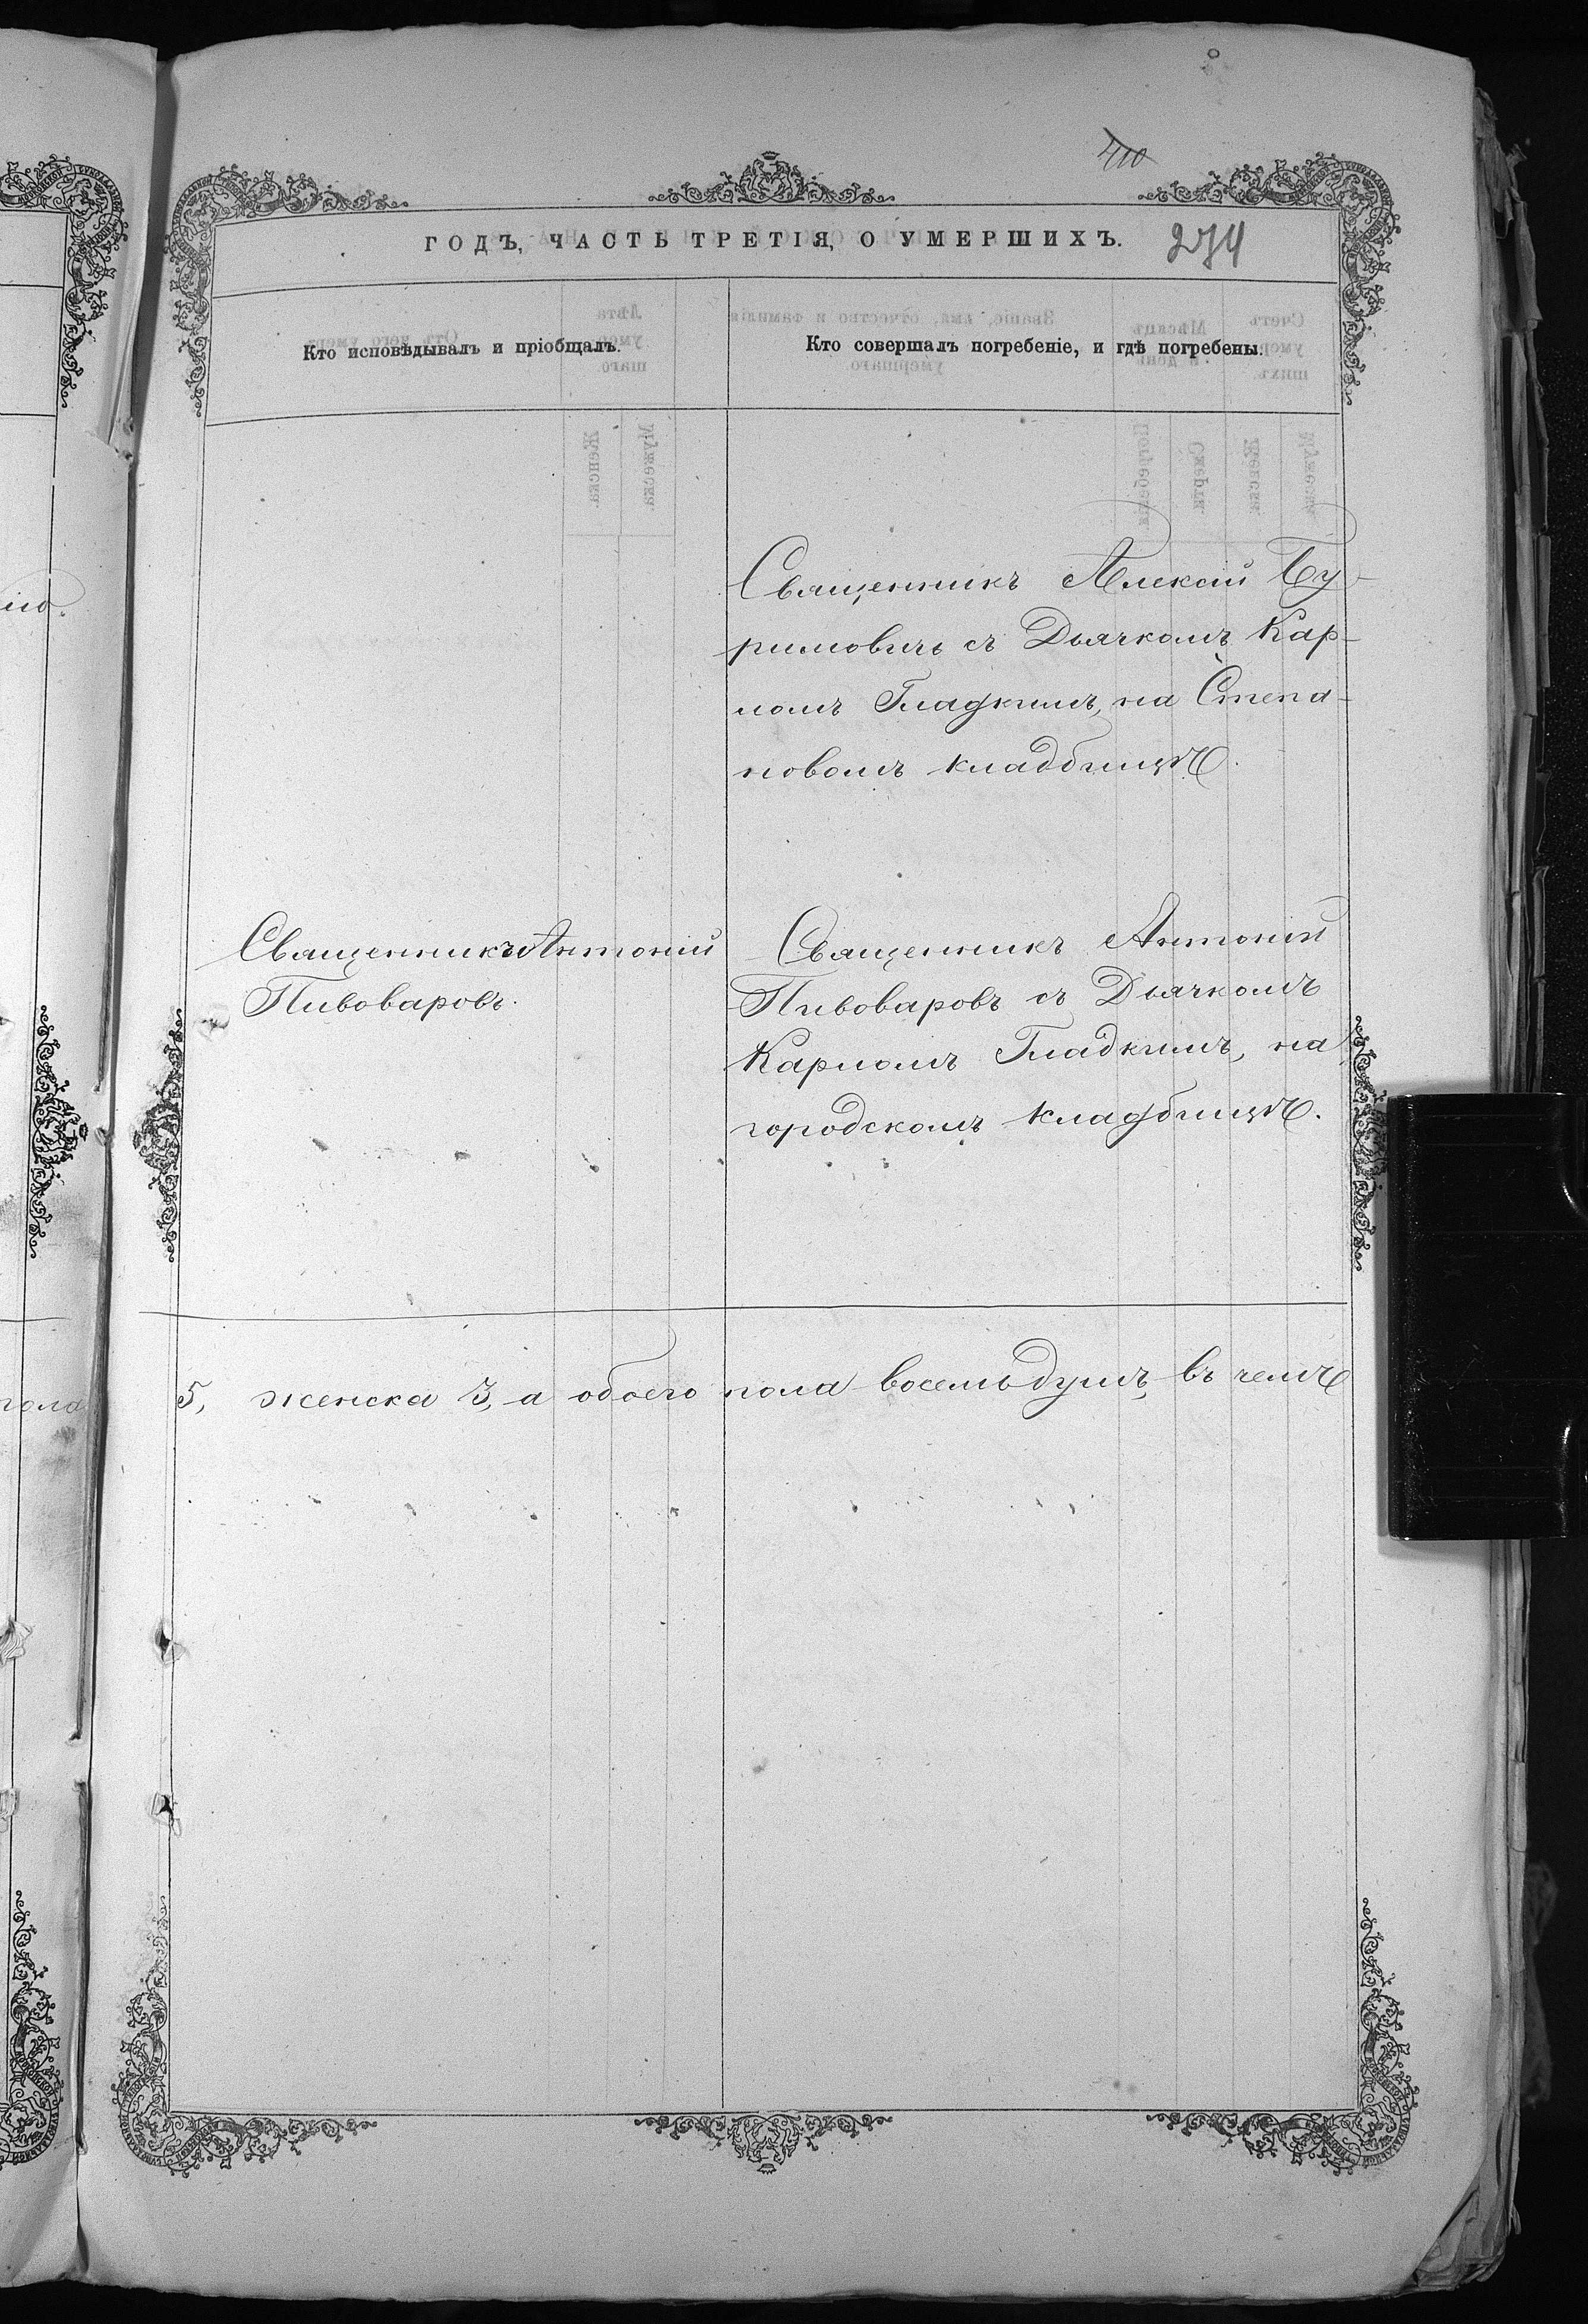 410
ГОДЪ, ЧАСТЬ ТРЕТІЯ, О УМЕРШИХЪ.
274
Кто исповѣдывалъ и пріобщалъ.
Кто совершалъ погребеніе, и гдѣ погребены.
Священникъ Алексій Бу-
римовичъ съ Дьячкомъ Кар-
помъ Гладкимъ, на Степа-
новомъ кладбищѣ.
Священникъ Антоній
Пивоваровъ.
Священникъ Антоній
Пивоваровъ съ Дьячкомъ
Карпомъ Гладкимъ, на
городскомъ кладбищѣ.
пола
5, женска 3, а обоего пола восемь душъ, въ чемъ